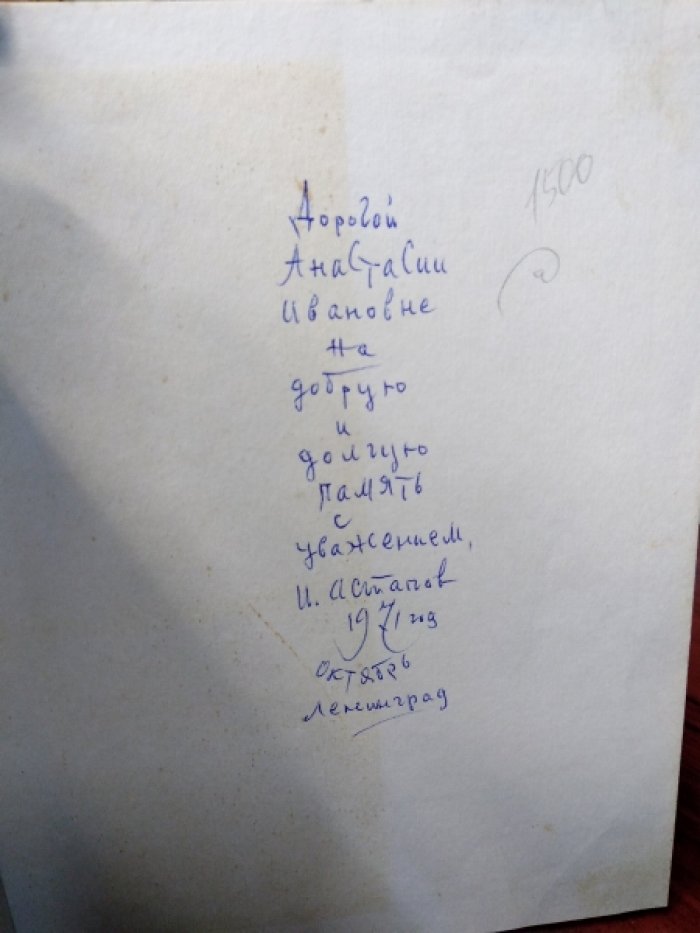 Дорогой
1500
Анастасии
Ивановне
на
добрую
и
долгую
память
с
уважением,
И. Астапов
1971 год
октябрь
Ленинград